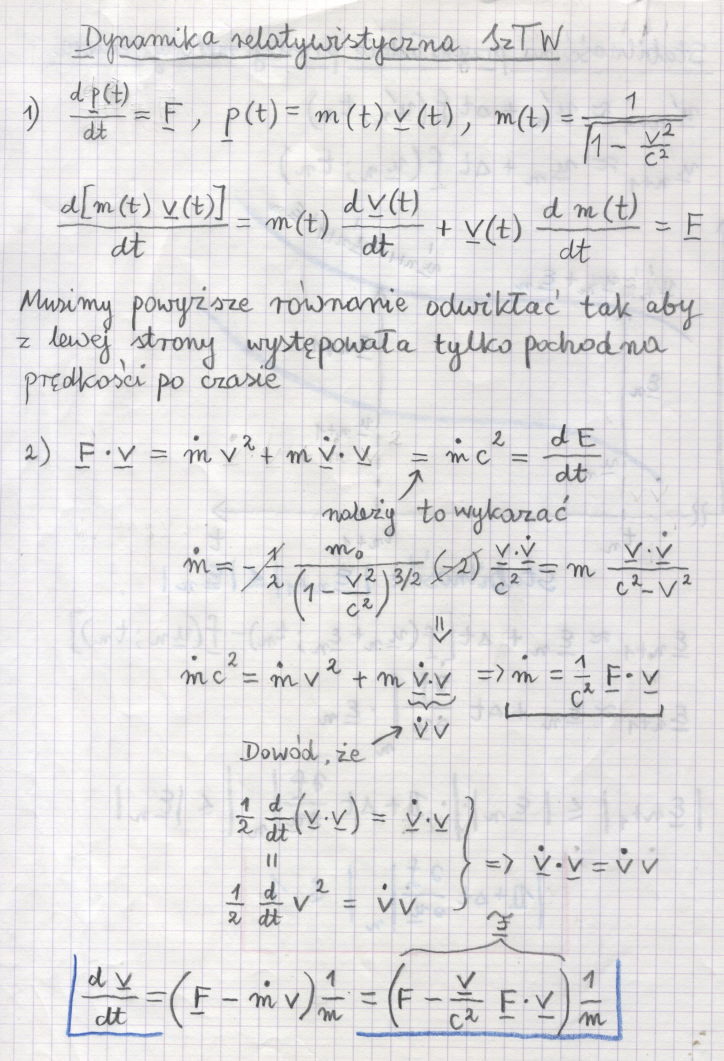 Dynamika relatywistyczna 1szTW
1) d p̲(t)/dt = F̲, p̲(t) = m(t) v̲(t), m(t) = 1/√(1 - v²/c²)
d[m(t) v̲(t)]/dt = m(t) d v̲(t)/dt + v̲(t) d m(t)/dt = F̲
Musimy powyższe równanie odwikłać tak aby
z lewej strony występowała tylko pochodna
prędkości po czasie
2) F̲ · v̲ = ṁ v² + m v̲̇ · v̲ = ṁ c² = dE/dt
należy to wykazać
ṁ = - 1/2 m₀/(1 - v²/c²)^3/2 (-2) v̲·v̲̇/c² = m v̲·v̲̇/(c² - v²)
⇓
ṁ c² = ṁ v² + m v̲̇·v̲ => ṁ = 1/c² F̲ · v̲
Dowód, że v̇ v
1/2 d/dt (v̲·v̲) = v̲̇·v̲
=
1/2 d/dt v² = v̇ v
=> v̲̇·v̲ = v̇ v
d v̲/dt = (F̲ - ṁ v) 1/m = (F - v̲/c² F̲ · v̲) 1/m